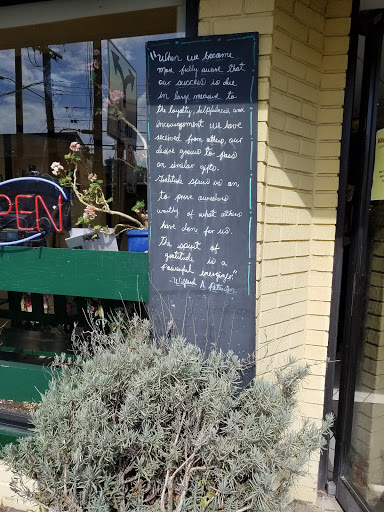 "When we become
more fully aware that
our success is due
in large measure to
the loyalty, helpfulness, and
encouragement we have
received from others, our
desire grows to pass
on similar gifts.
Gratitude spurs us on
to prove ourselves
worthy of what others
have done for us.
The spirit of
gratitude is a
powerful energizer."
-Wilferd A. Peterson
PEN